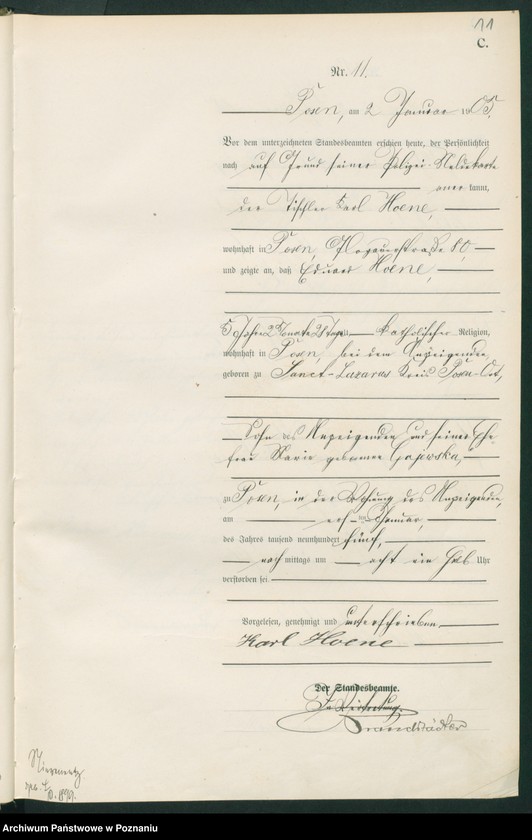 11
C.
Nr. 11.
Posen, am 2 Januar 1905.
Vor dem unterzeichneten Standesbeamten erschien heute, der Persönlichkeit
nach auf Grund seiner Polizei-Meldekarte
aner kannt,
der Tischler Karl Hoene,
wohnhaft in Posen, Glogauerstraße 80,
und zeigte an, daß Eduard Hoene,
5 Jahre 2 Monate 2 Tage alt, katholischer Religion,
wohnhaft in Posen, bei dem Anzeigenden,
geboren zu Sanct-Lazarus Kreis Posen-Ost,
Sohn des Anzeigenden und seiner Ehe
frau Marie geborene Gajewska,
zu Posen, in der Wohnung des Anzeigenden,
am ersten Januar,
des Jahres tausend neunhundert fünf,
nach mittags um acht ein halb Uhr
verstorben sei
Vorgelesen, genehmigt und unterschrieben
Karl Hoene
Der Standesbeamte.
In Vertretung.
Brandstädter
Archiwum Państwowe w Poznaniu